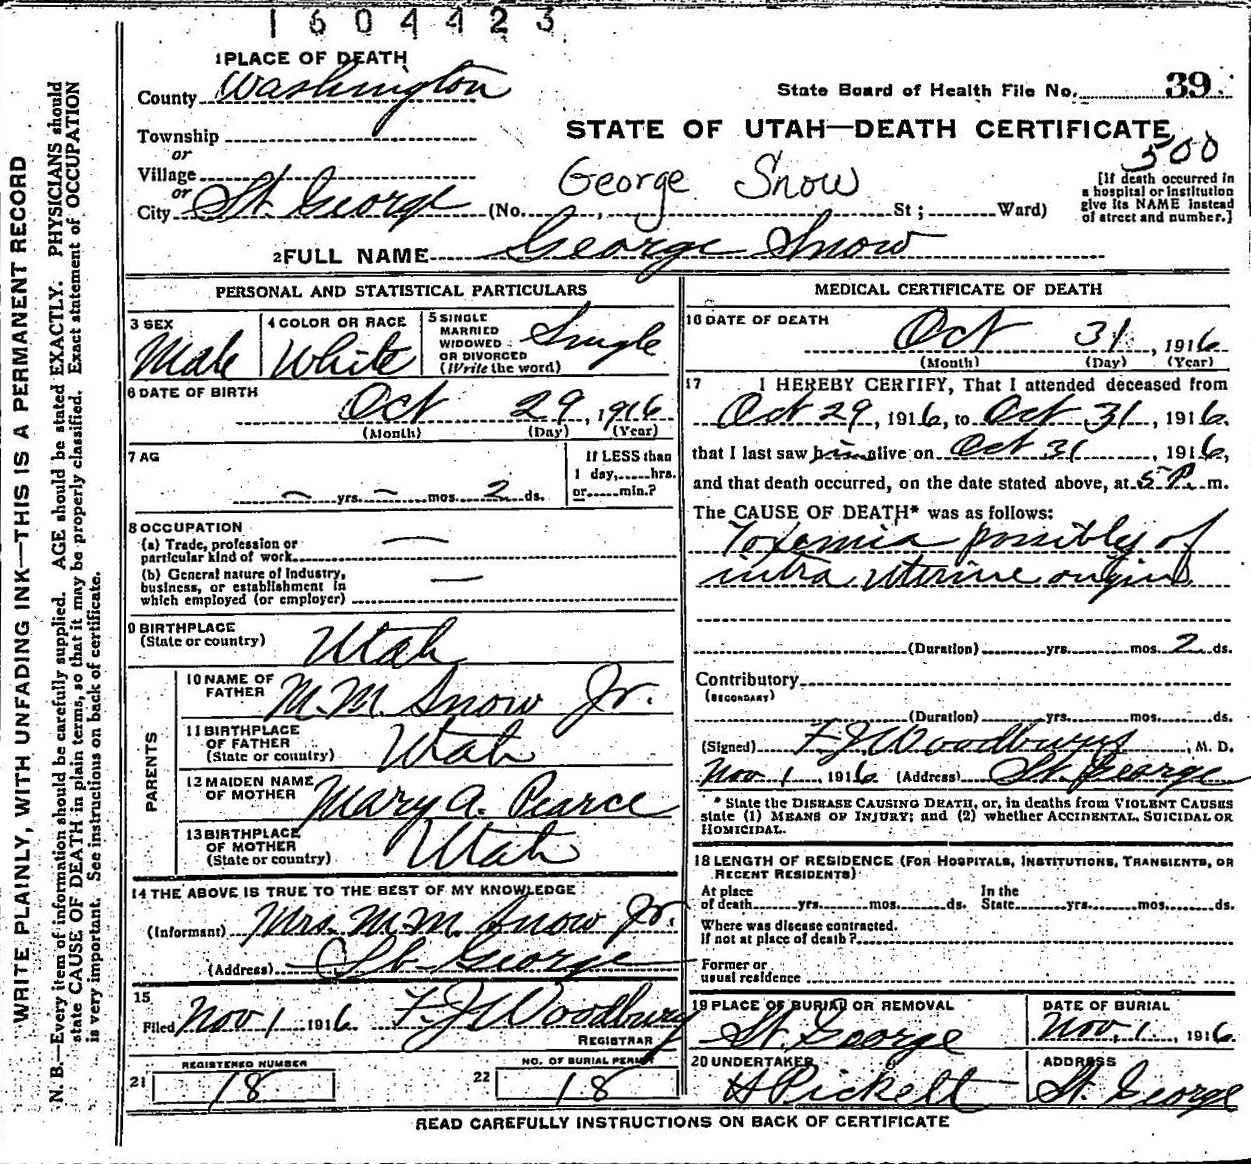 1604423
WRITE PLAINLY, WITH UNFADING INK—THIS IS A PERMANENT RECORD
N. B.—Every item of information should be carefully supplied. AGE should be stated EXACTLY. PHYSICIANS should
state CAUSE OF DEATH in plain terms, so that it may be properly classified. Exact statement of OCCUPATION
is very important. See instructions on back of certificate.
1 PLACE OF DEATH
County Washington
State Board of Health File No. 39
Township
or
STATE OF UTAH—DEATH CERTIFICATE
500
Village
or
George Snow
[If death occurred in
a hospital or institution
give its NAME instead
of street and number.]
City St. George (No. , St ; Ward)
2 FULL NAME George Snow
PERSONAL AND STATISTICAL PARTICULARS
3 SEX
Male
4 COLOR OR RACE
White
5 SINGLE
MARRIED
WIDOWED
OR DIVORCED
(Write the word)
Single
6 DATE OF BIRTH
Oct 29, 1916
(Month) (Day) (Year)
7 AG
— yrs. — mos. 2 ds.
If LESS than
1 day, hrs.
or min.?
8 OCCUPATION
(a) Trade, profession or
particular kind of work —
(b) General nature of Industry,
business, or establishment in
which employed (or employer) —
9 BIRTHPLACE
(State or country) Utah
PARENTS
10 NAME OF
FATHER M. M. Snow Jr.
11 BIRTHPLACE
OF FATHER
(State or country) Utah
12 MAIDEN NAME
OF MOTHER Mary A. Pearce
13 BIRTHPLACE
OF MOTHER
(State or country) Utah
14 THE ABOVE IS TRUE TO THE BEST OF MY KNOWLEDGE
(Informant) Mrs. M. M. Snow Jr.
(Address) St. George
15
Filed Nov 1 1916 F. J. Woodbury
REGISTRAR
REGISTERED NUMBER
21 18
NO. OF BURIAL PERMIT
22 18
MEDICAL CERTIFICATE OF DEATH
16 DATE OF DEATH
Oct 31, 1916
(Month) (Day) (Year)
17 I HEREBY CERTIFY, That I attended deceased from
Oct 29, 1916, to Oct 31, 1916,
that I last saw him alive on Oct 31, 1916,
and that death occurred, on the date stated above, at 5 P. m.
The CAUSE OF DEATH* was as follows:
Toxemia possibly of
intra uterine origin
(Duration) yrs. mos. 2 ds.
Contributory
(SECONDARY)
(Duration) yrs. mos. ds.
(Signed) F. J. Woodbury, M. D.
Nov 1, 1916 (Address) St. George
* State the DISEASE CAUSING DEATH, or, in deaths from VIOLENT CAUSES
state (1) MEANS OF INJURY; and (2) whether ACCIDENTAL, SUICIDAL OR
HOMICIDAL.
18 LENGTH OF RESIDENCE (FOR HOSPITALS, INSTITUTIONS, TRANSIENTS, OR
RECENT RESIDENTS)
At place
of death yrs. mos. ds.
In the
State yrs. mos. ds.
Where was disease contracted.
If not at place of death?
Former or
usual residence
19 PLACE OF BURIAL OR REMOVAL
St. George
DATE OF BURIAL
Nov. 1, 1916
20 UNDERTAKER
H Pickett
ADDRESS
St. George
READ CAREFULLY INSTRUCTIONS ON BACK OF CERTIFICATE